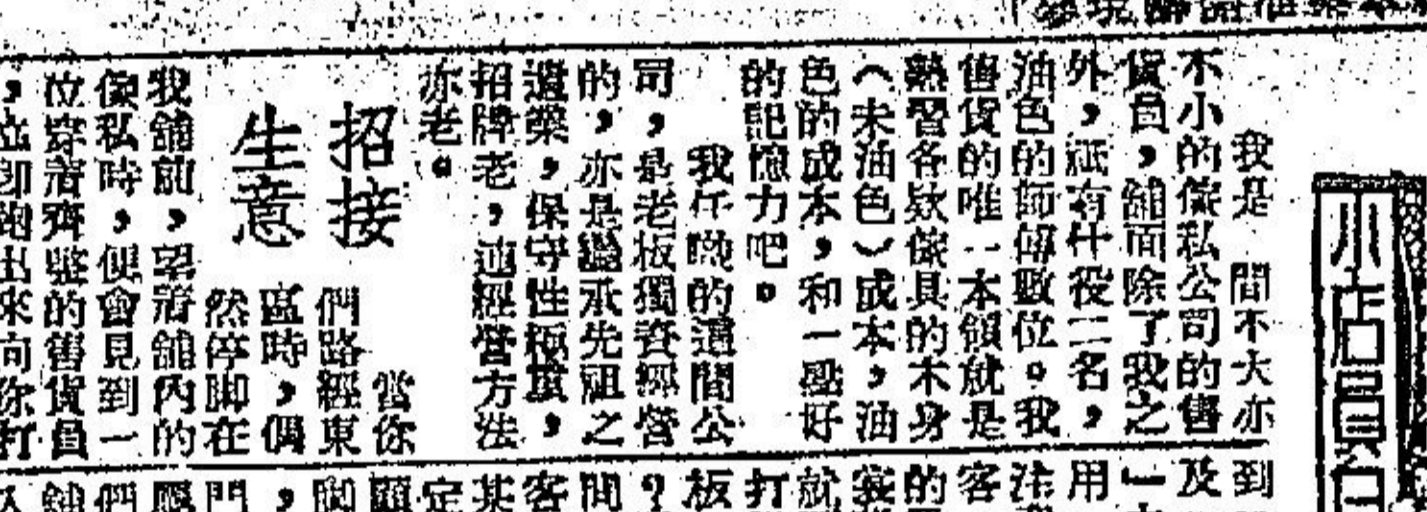 小店員
我是 間不大亦
不小的傢私公司的售
貨員，舖面除了我之
外，祇有什役二名，
油色的師傅數位。我
售貨的唯一本領就是
熟習各欵傢具的木身
（未油色）成本，油
色的成本，和一點好
的記憶力吧。
我任職的這間公
司，是老板獨資經營
的，亦是繼承先祖之
遺業，保守性極重，
招牌老，連經營方法
亦老。
招接
生意
當你
們路經東
區時，偶
然停脚在
我舖前，望着舖內的
傢私時，便會見到一
位穿着齊整的售貨員
，立即跑出來向你打
到
及
用
注
客
的
就
打
板
？
間
客
某
定
顧
，
門
們
舖